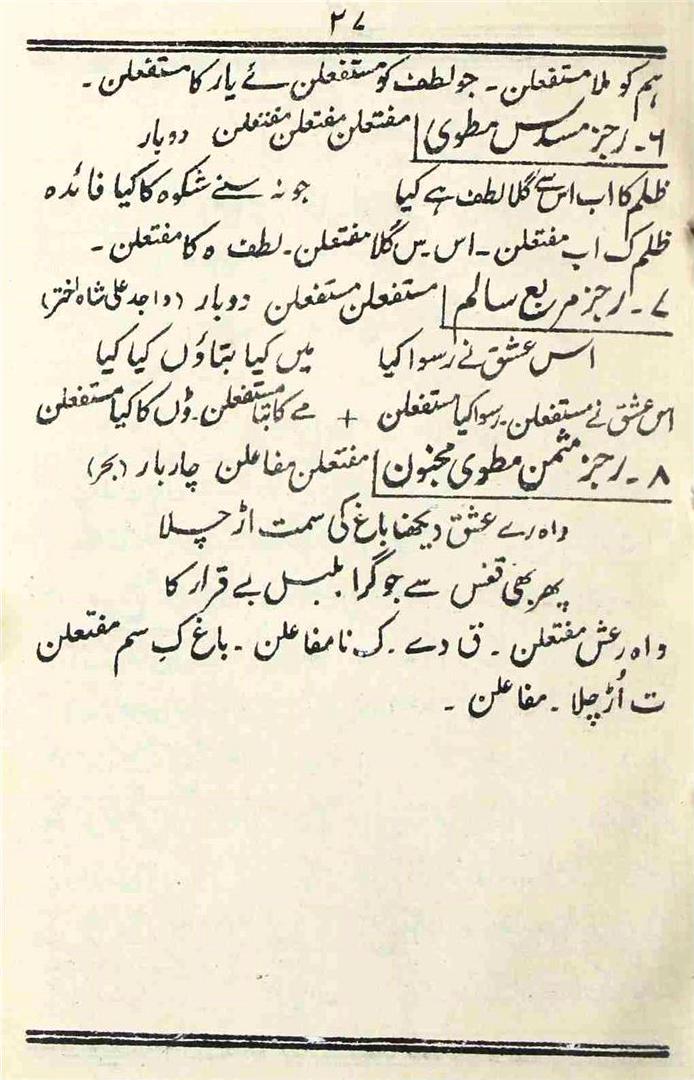 ۲۷
ہم کو ملا مستفعلن ۔ جو لطف کو مستفعلن ئے یار کا مستفعلن ۔
۶ ۔ رجز مسدس مطوی مفتعلن مفتعلن مفتعلن دوبار
ظلم کا اب اس سے گلا لطف ہے کیا جو نہ سنے شکوہ کا کیا فائدہ
ظلم ک اب مفتعلن ۔ اس س گلا مفتعلن ۔ لطف ہ کا مفتعلن ۔
۷ ۔ رجز مربع سالم مستفعلن مستفعلن دوبار (واجد علی شاہ اختر)
اس عشق نے رسوا کیا میں کیا بتاؤں کیا کیا
اس عشق نے مستفعلن ۔ رسوا کیا مستفعلن + مے کا بتا مستفعلن ۔ ؤں کا کیا مستفعلن
۸ ۔ رجز مثمن مطوی مخبون مفتعلن مفاعلن چار بار (بحر)
واہ رے عشق دیکھنا باغ کی سمت اڑ چلا
پھر بھی قفس سے جو گرا بلبل بے قرار کا
واہ رعش مفتعلن ۔ ق دے ۔ ک نا مفاعلن ۔ باغ ک سم مفتعلن
ت اُڑ چلا ۔ مفاعلن ۔